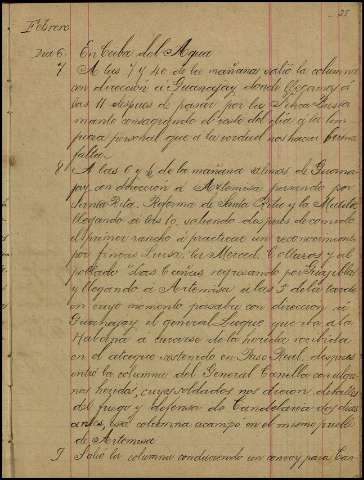 25
Febrero
Dia 6. En Ceiba del Agua
7 A las 7 y 40 de la mañana salió la columna
con dirección á Guanajay donde llegamos á
las 11 despues de pasar por
consagrando el resto del dia á la lim-
pieza personal que a la verdad nos hacia
falta.
8 A las 6 y ½ de la mañana salimos de Guana-
jay en dirección á Artemisa pasando por
Santa Rita, Reforma de Santa Rita y la Matilde
llegando á las 10, saliendo despues de comido
el primer rancho á practicar un reconocimiento
por fincas Luisa, la Merced, Collazos y al
poblado Las Cañas regresando por
y llegando á Artemisa á las 5 de la tarde
en cuyo momento pasaba con direccion á
Guanajay el general Luque que iba á la
Habana á curarse de la herida recibida
en el ataque sostenido en Paso Real, despues
entró la columna del General Canella con algu-
nos heridos, cuyos soldados nos dicion detalles
del fuego y defensa de Candelaria dos dias
antes, esta columna acampó en el mismo pueblo
de Artemisa
9 Salió la columna conduciendo un convoy para Can-